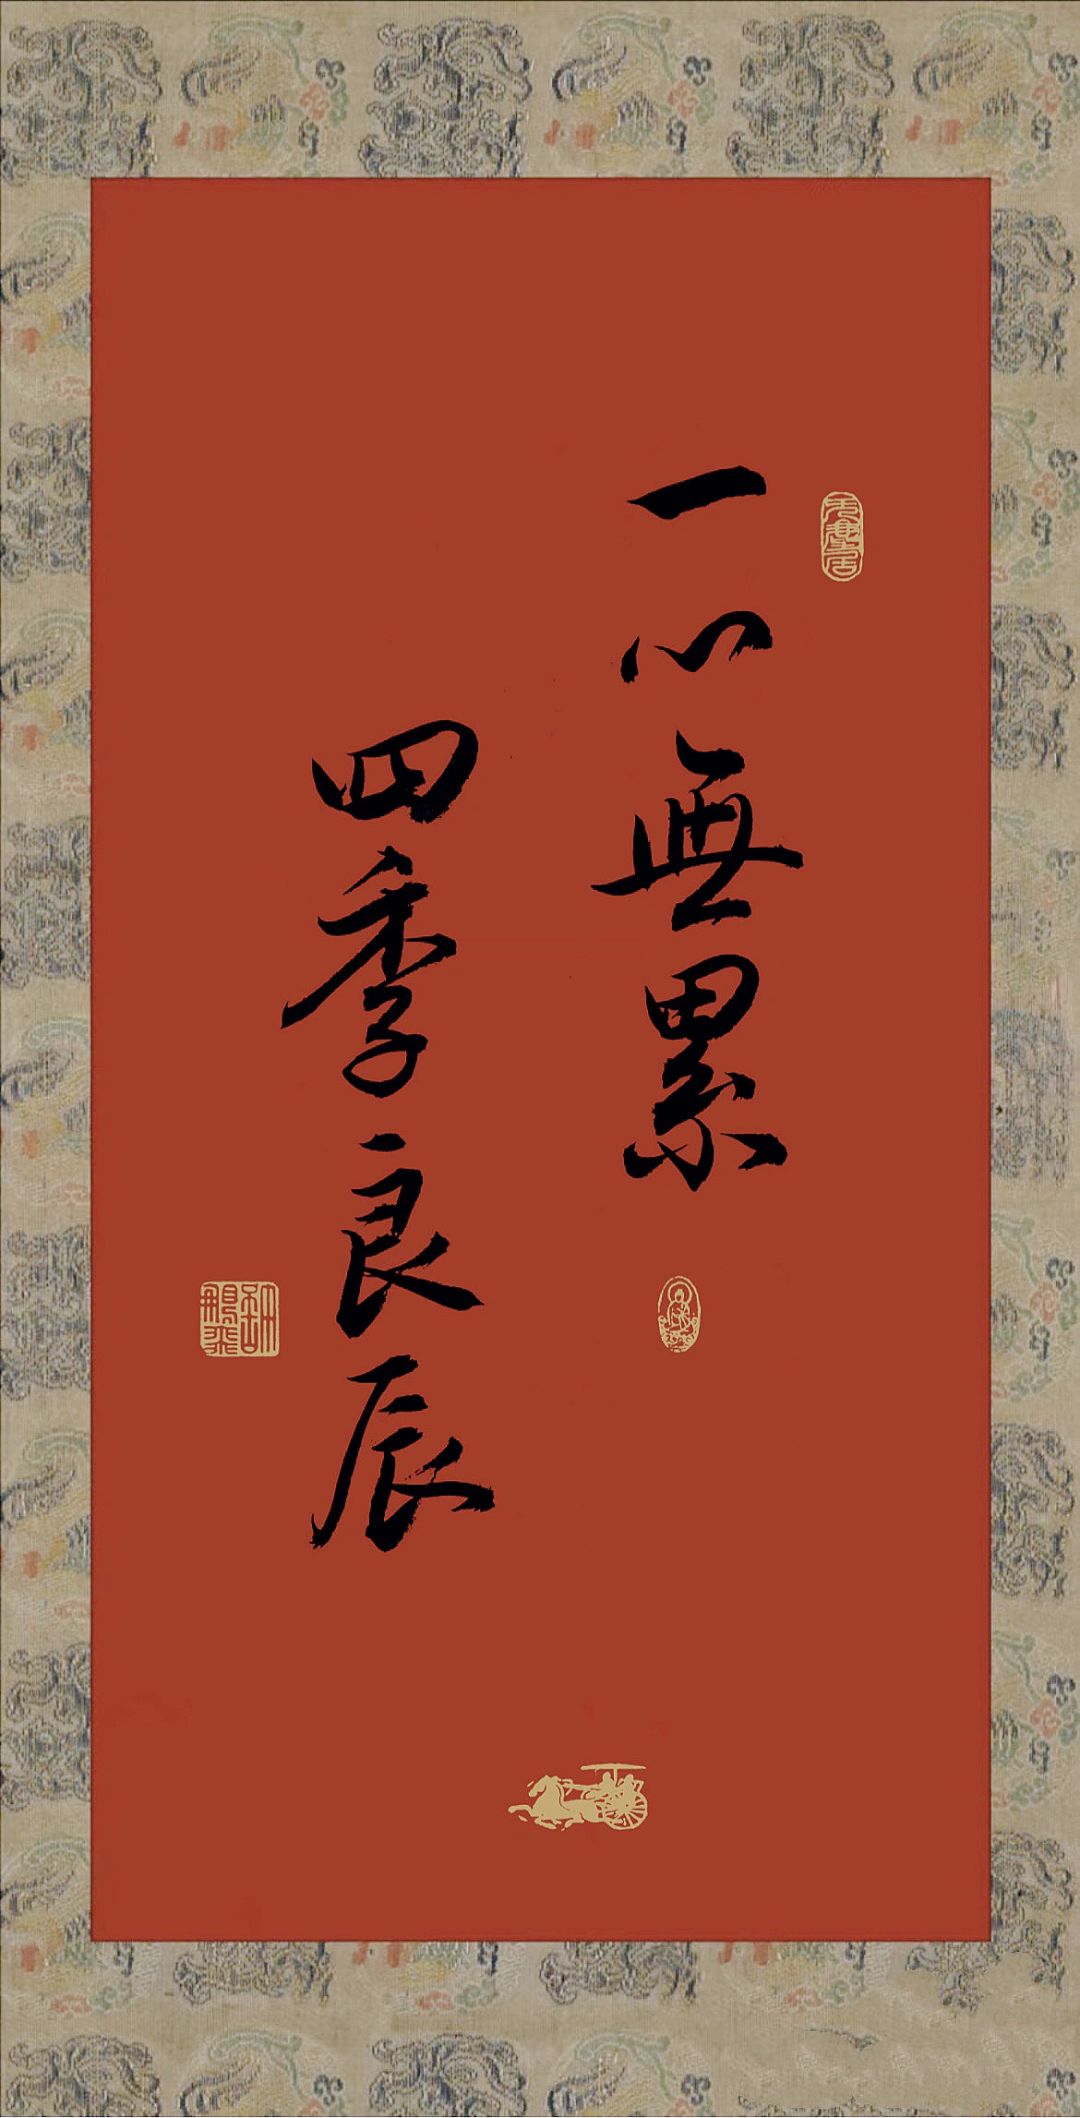 一心無累
四季良辰